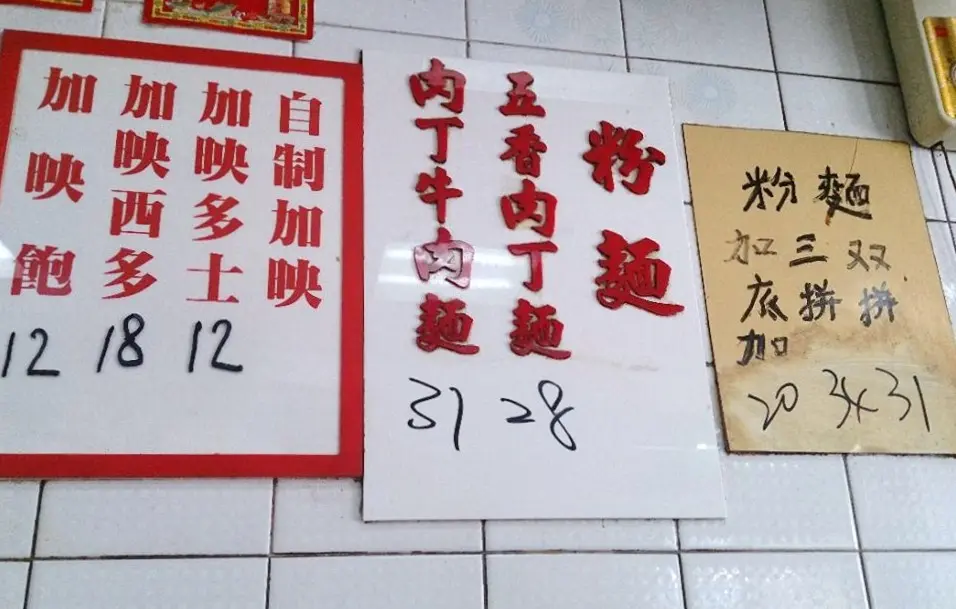 自制加映
加映多士
12
加映西多
18
加映飽
12
粉麵
五香肉丁麵
28
肉丁牛肉麵
31
粉麵
双拼
31
三拼
34
加底加
20